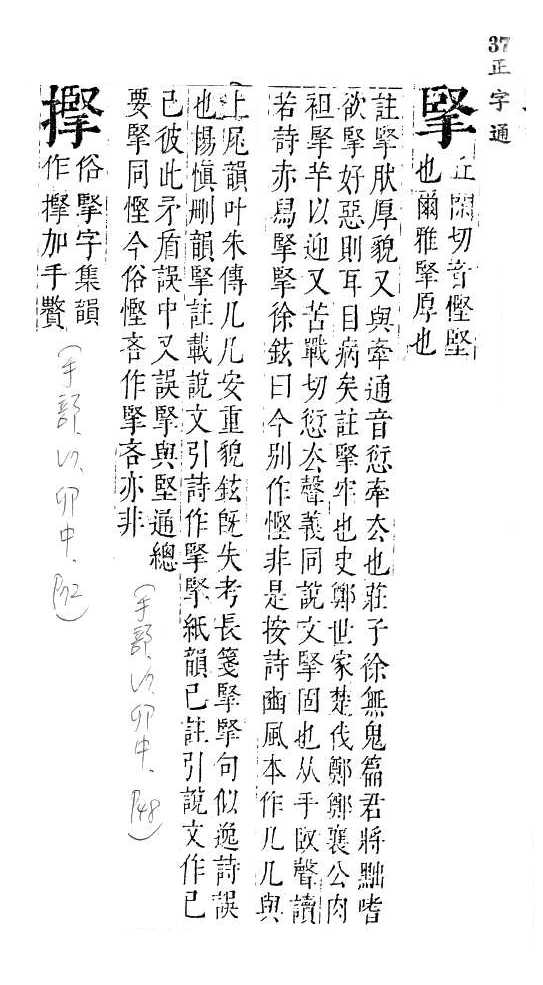 37
正字通
掔
丘閑切音慳堅
也爾雅掔厚也
註掔肰厚貌又與牽通音愆牽厺也莊子徐無鬼篇君將黜嗜
欲掔好惡則耳目病矣註掔牢也史鄭世家楚伐鄭鄭襄公肉
袒掔羊以迎又苦戰切愆厺聲義同說文掔固也从手臤聲讀
若詩赤舄掔掔徐鉉曰今別作慳非是按詩豳風本作几几與
上尾韻叶朱傳几几安重貌鉉旣失考長箋掔掔句似逸詩誤
也楊愼刪韻掔註載說文引詩作掔掔紙韻已註引說文作己
己彼此矛盾誤中又誤掔與堅通總
要掔同慳今俗慳吝作掔吝亦非
(手部,卯中,P48)
摼
俗掔字集韻
作摼加手贅
(手部,卯中,P52)